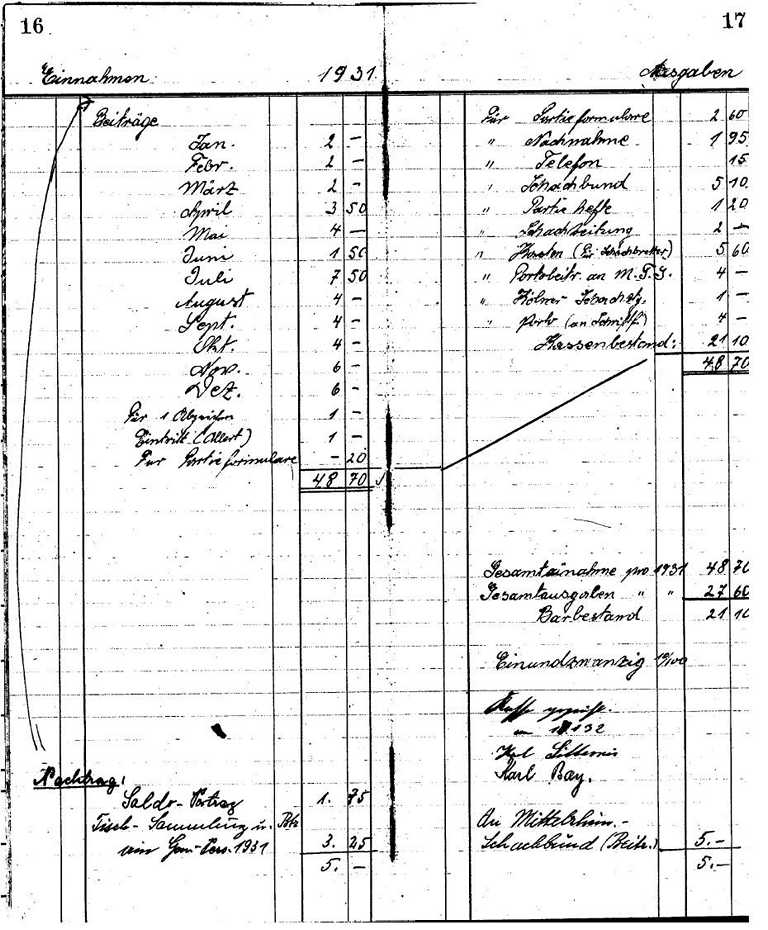 16
Einnahmen: 1931
Beiträge
Jan. 2 –
Febr. 2 –
März 2 –
April 3 50
Mai 4 –
Juni 1 50
Juli 7 50
August 4 –
Sept. 4 –
Okt. 4 –
Nov. 6 –
Dez. 6 –
Für 1 Abzeichen 1 –
Eintritt (Allert) 1 –
Für Partieformulare – 20
48 70
Nachtrag:
Saldo-Vortrag 1. 75
Tisch-Sammlung u.
Gen-Vers. 1931 3. 25
5. –
17
Ausgaben
Für Partieformulare 2 60
" Nachnahme 1 95
" Telefon 15
" Schachbund 5 10
" Partiehefte 1 20
" Schachzeitung 2 –
" Kasten (für Schachbretter) 5 60
" Portobeitr. an M. 4 –
" Kölner Schachztg. 1 –
" Porto (an Schriftf.) 4 –
Kassenbestand: 21 10
48 70
Gesamteinahme pro 1931 48 70
Gesamtausgaben " " 27 60
Barbestand 21 10
Einundzwanzig 10/100
Karl Bay.
An Mittelrhein.-
Schachbund (Beitr.) 5.–
5.–